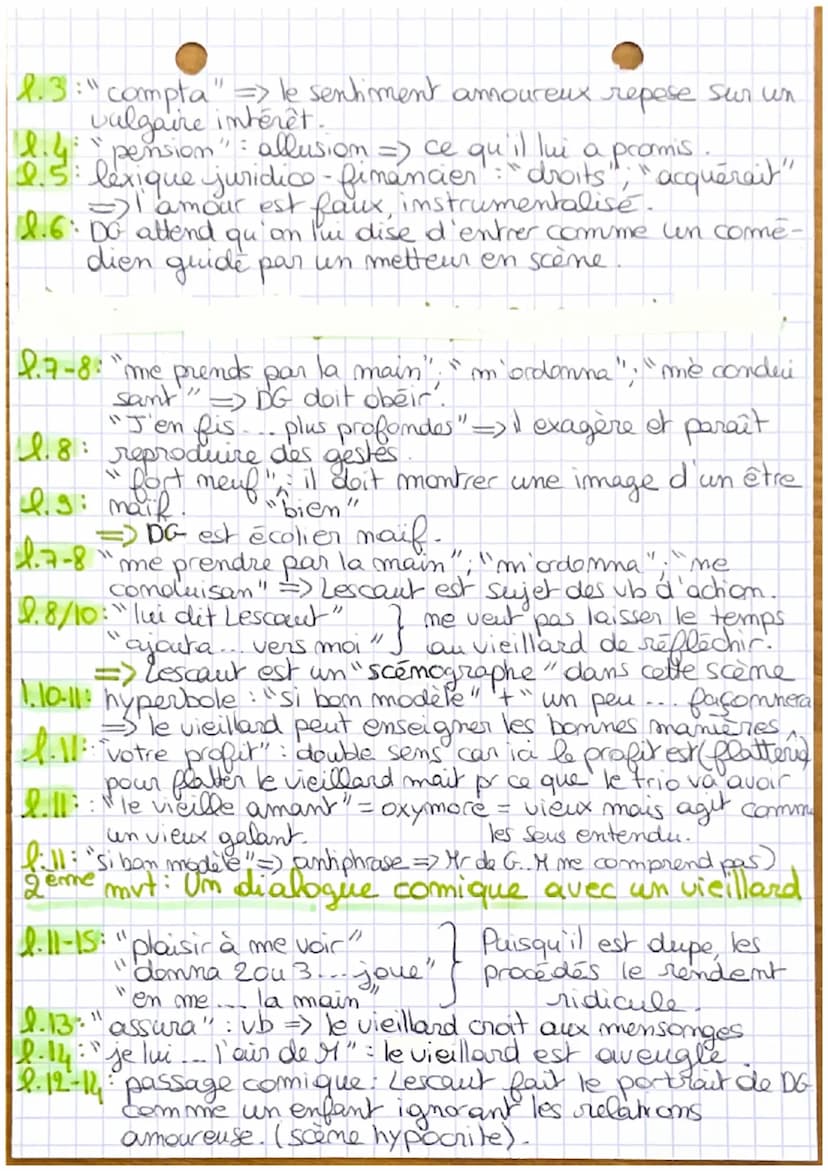 l.3 : "compta" => le sentiment amoureux repose sur un
vulgaire intérêt.
l.4 : "pension" : allusion => ce qu'il lui a promis.
l.5 : lexique juridico-financier : "droits" ; "acquérait"
=> l'amour est faux, instrumentalisé.
l.6 : DG attend qu'on lui dise d'entrer comme un comé-
dien guidé par un metteur en scène.
l.7-8 : "me prends par la main" ; "m'ordonna" ; "me condui
sant" => DG doit obéir.
"J'en fis ... plus profondes" => il exagère et paraît
l.8 : reproduire des gestes.
"fort neuf", : il doit montrer une image d'un être
l.9 : naïf. "bien"
=> DG est écolier naïf.
l.7-8 "me prendre par la main" ; "m'ordonna" ; "me
conduisan" => Lescaut est sujet des vb d'action.
l.8/10 : "lui dit Lescaut" } ne veut pas laisser le temps
"ajouta ... vers moi" } au vieillard de réfléchir.
=> Lescaut est un "scénographe" dans cette scène
l.10-11 : hyperbole : "si bon modèle" + "un peu ... façonnera
=> le vieillard peut enseigner les bonnes manières
l.11 : "votre profit" : double sens car ici le profit est (flatterie)
pour flatter le vieillard mait pr ce que le trio va avoir
l.11 : "le vieille amant" = oxymore = vieux mais agit comme
un vieux galant. les sous entendu.
l.11 : "si bon modèle" => antiphrase => Mr de G..M ne comprend pas)
2ème mvt : Un dialogue comique avec un vieillard
l.11-15 : "plaisir à me voir" } Puisqu'il est dupe, les
"donna 2 ou 3 ... joue" } procédés le rendent
"en me ... la main" } ridicule.
l.13 : "assura" : vb => le vieillard croit aux mensonges
l.14 : "je lui ... l'air de M" : le vieillard est aveugle
l.12-14 : passage comique : Lescaut fait le portrait de DG
comme un enfant ignorant les relations
amoureuse. (scène hypocrite).